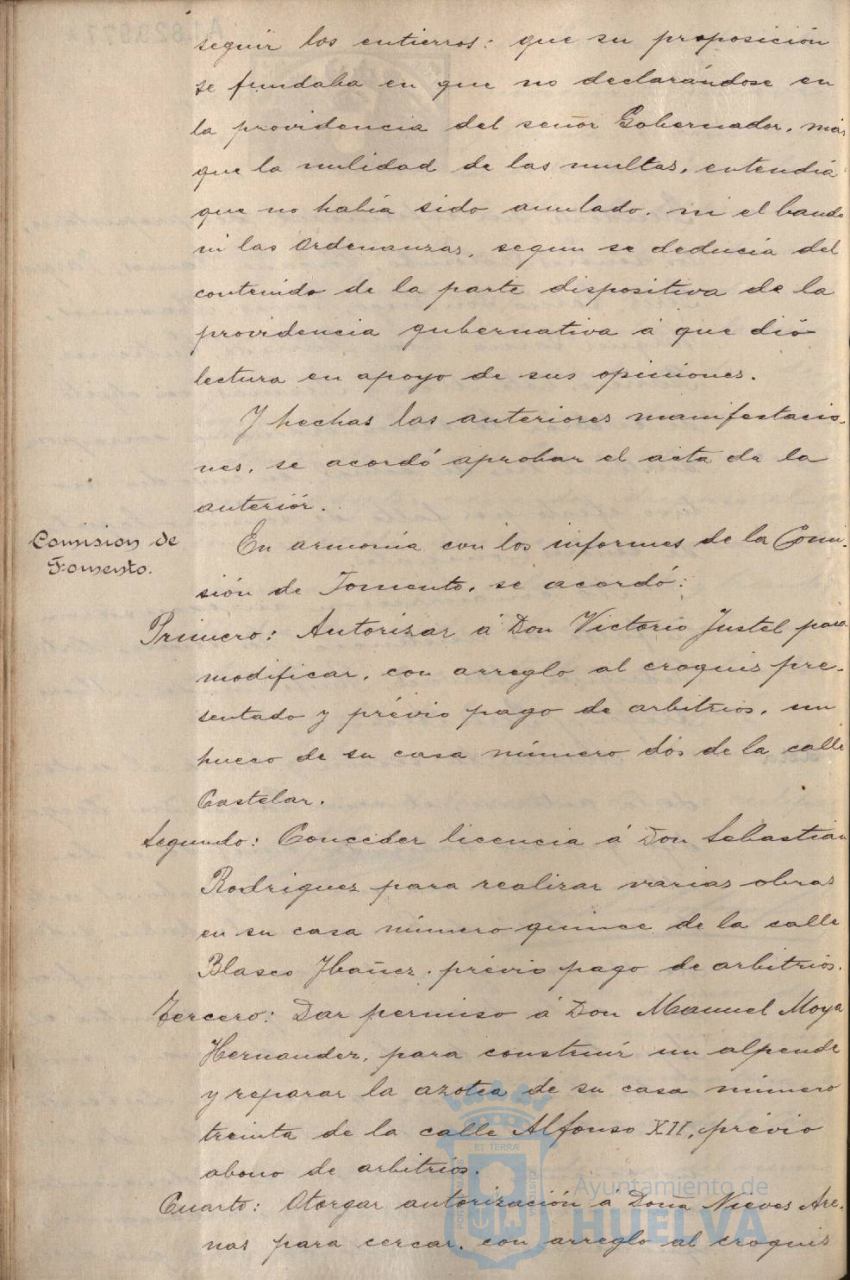 seguir los entierros: que su proposición
se fundaba en que no declarándose en
la providencia del señor Gobernador, mas
que la nulidad de las multas, entendia
que no habia sido anulado, ni el bando
ni las Ordenanzas, segun se deducia del
contenido de la parte dispositiva de la
providencia gubernativa á que dió
lectura en apoyo de sus opiniones.
Y hechas las anteriores manifestacio-
nes, se acordó aprobar el acta de la
anteriór.
Comision de
Fomento.
En armonia con los informes de la Comi-
sión de Fomento, se acordó:
Primero: Autorizar á Don Victorio Justel para
modificar, con arreglo al croquis pre-
sentado y prévio pago de arbitrios, un
hueco de su casa número dos de la calle
Castelar.
Segundo: Conceder licencia á Don Sebastian
Rodriguez para realizar varias obras
en su casa número quince de la calle
Blasco Ybañez, prévio pago de arbitrios.
Tercero: Dar permiso á Don Manuel Moya
Hernandez, para construir un alpende
y reparar la azotea de su casa número
treinta de la calle Alfonso XII, prévio
abono de arbitrios.
Cuarto: Otorgar autorización á Doña Nieves Are-
nas para cercar, con arreglo al croquis
ET TERRA
Ayuntamiento de
HUELVA